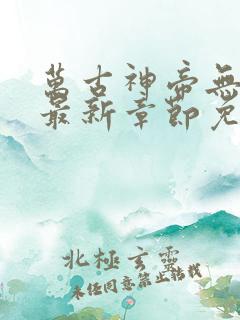 萬古神帝無
最新章節免
北極玄靈
未経同意禁止轉載